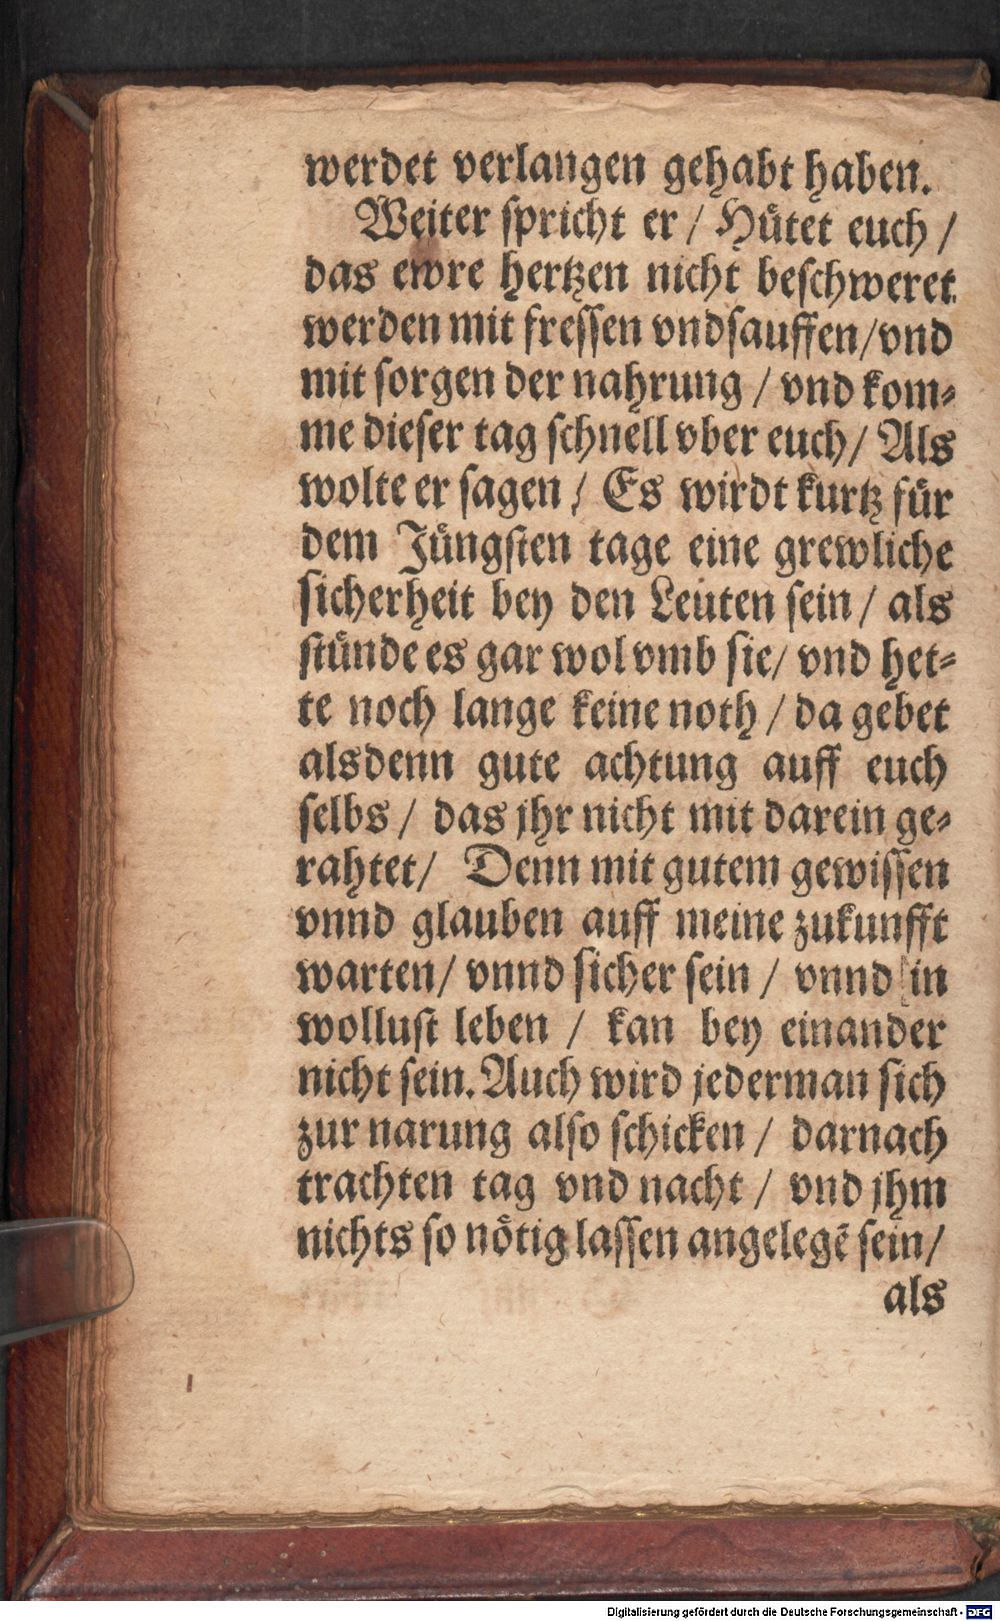 werdet verlangen gehabt haben.
Weiter spricht er / Hütet euch /
das ewre hertzen nicht beschweret
werden mit fressen vndsauffen/vnd
mit sorgen der nahrung / vnd kom⸗
me dieser tag schnell vber euch/ Als
wolte er sagen / Es wirdt kurtz für
dem Jüngsten tage eine grewliche
sicherheit bey den Leuten sein / als
stünde es gar wol vmb sie/ vnd het⸗
te noch lange keine noth / da gebet
alsdenn gute achtung auff euch
selbs / das jhr nicht mit darein ge⸗
rahtet/ Denn mit gutem gewissen
vnnd glauben auff meine zukunfft
warten/ vnnd sicher sein / vnnd in
wollust leben / kan bey einander
nicht sein. Auch wird jederman sich
zur narung also schicken / darnach
trachten tag vnd nacht / vnd jhm
nichts so nötig lassen angelegē sein/
als
Digitalisierung gefördert durch die Deutsche Forschungsgemeinschaft - DFG